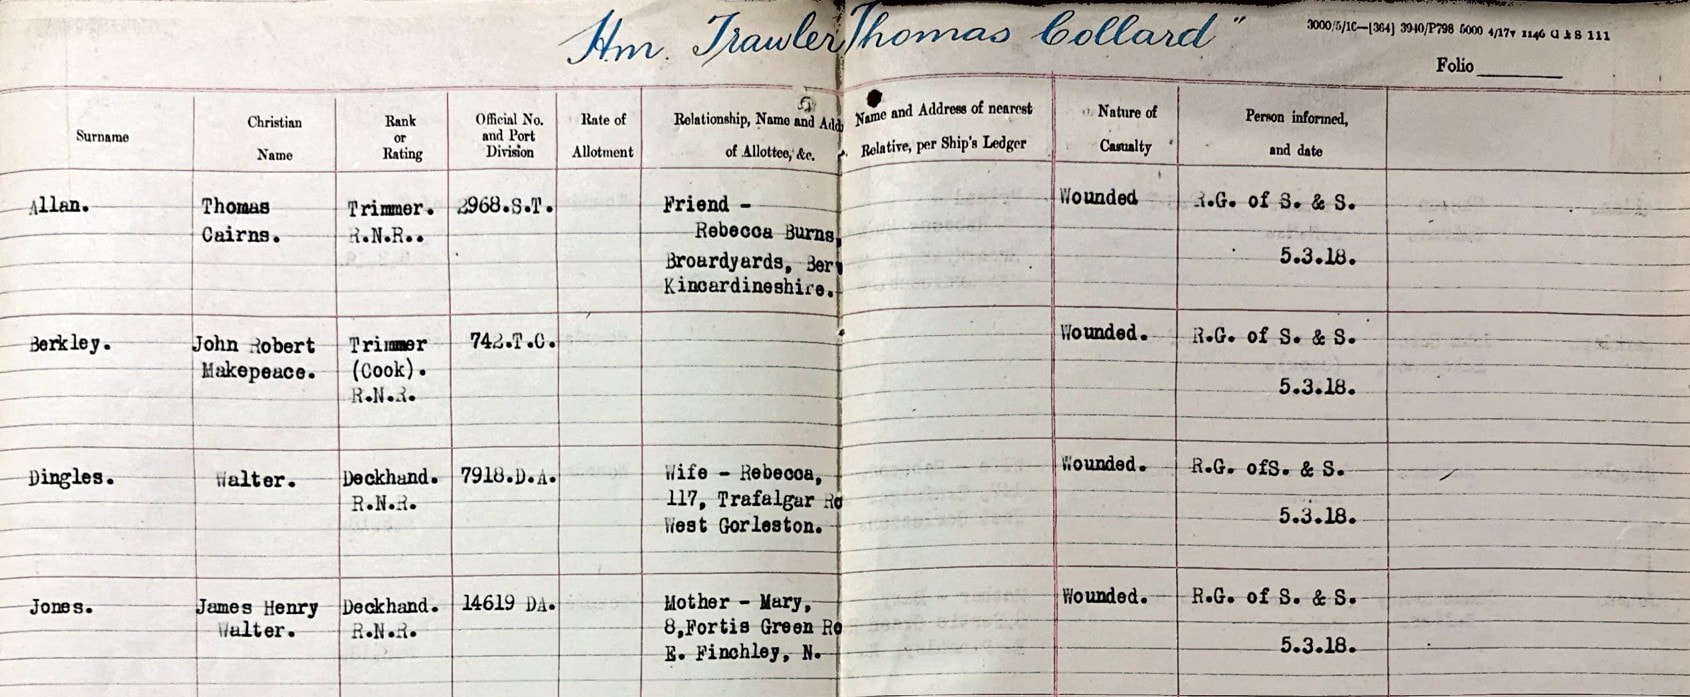 Hm. Trawler Thomas Collard"
3000/5/16—[364] 3940/P798 5000 4/17v 1146 G & S 111
Folio
Surname
Christian
Name
Rank
or
Rating
Official No.
and Port
Division
Rate of
Allotment
Relationship, Name and Add
of Allottee, &c.
Name and Address of nearest
Relative, per Ship's Ledger
Nature of
Casualty
Person informed,
and date
Allan.
Thomas
Cairns.
Trimmer.
R.N.R..
2968.S.T.
Friend -
Rebecca Burns,
Broardyards, Ber
Kincardineshire.
Wounded
R.G. of S. & S.
5.3.18.
Berkley.
John Robert
Makepeace.
Trimmer
(Cook).
R.N.R.
742.T.C.
Wounded.
R.G. of S. & S.
5.3.18.
Dingles.
Walter.
Deckhand.
R.N.R.
7918.D.A.
Wife - Rebecca,
117, Trafalgar Ro
West Gorleston.
Wounded.
R.G. ofS. & S.
5.3.18.
Jones.
James Henry
Walter.
Deckhand.
R.N.R.
14619 DA.
Mother - Mary,
8,Fortis Green Ro
E. Finchley, N.
Wounded.
R.G. of S. & S.
5.3.18.